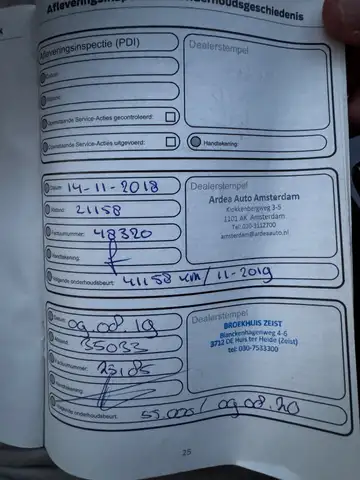 Afleveringsinspectie (PDI)
Dealerstempel
Openstaande Service-Acties gecontroleerd:
Openstaande Service-Acties uitgevoerd:
Handtekening:
Datum: 14-11-2018
Dealerstempel
Ardea Auto Amsterdam
Klokkenbergweg 3-5
1101 AK Amsterdam
amsterdam@ardeaauto.nl
21158
Factuurnummer: 48320
Handtekening:
Volgende onderhoudsbeurt: 41158 km / 11-2019
Datum: 09.08.19
Dealerstempel
BROEKHUIS ZEIST
Blanckenhagenweg 4-6
3712 DE Huis ter Heide (Zeist)
tel: 030-7533300
35033
Factuurnummer:
Handtekening:
Volgende onderhoudsbeurt: 55.000 / 09.08.20
25